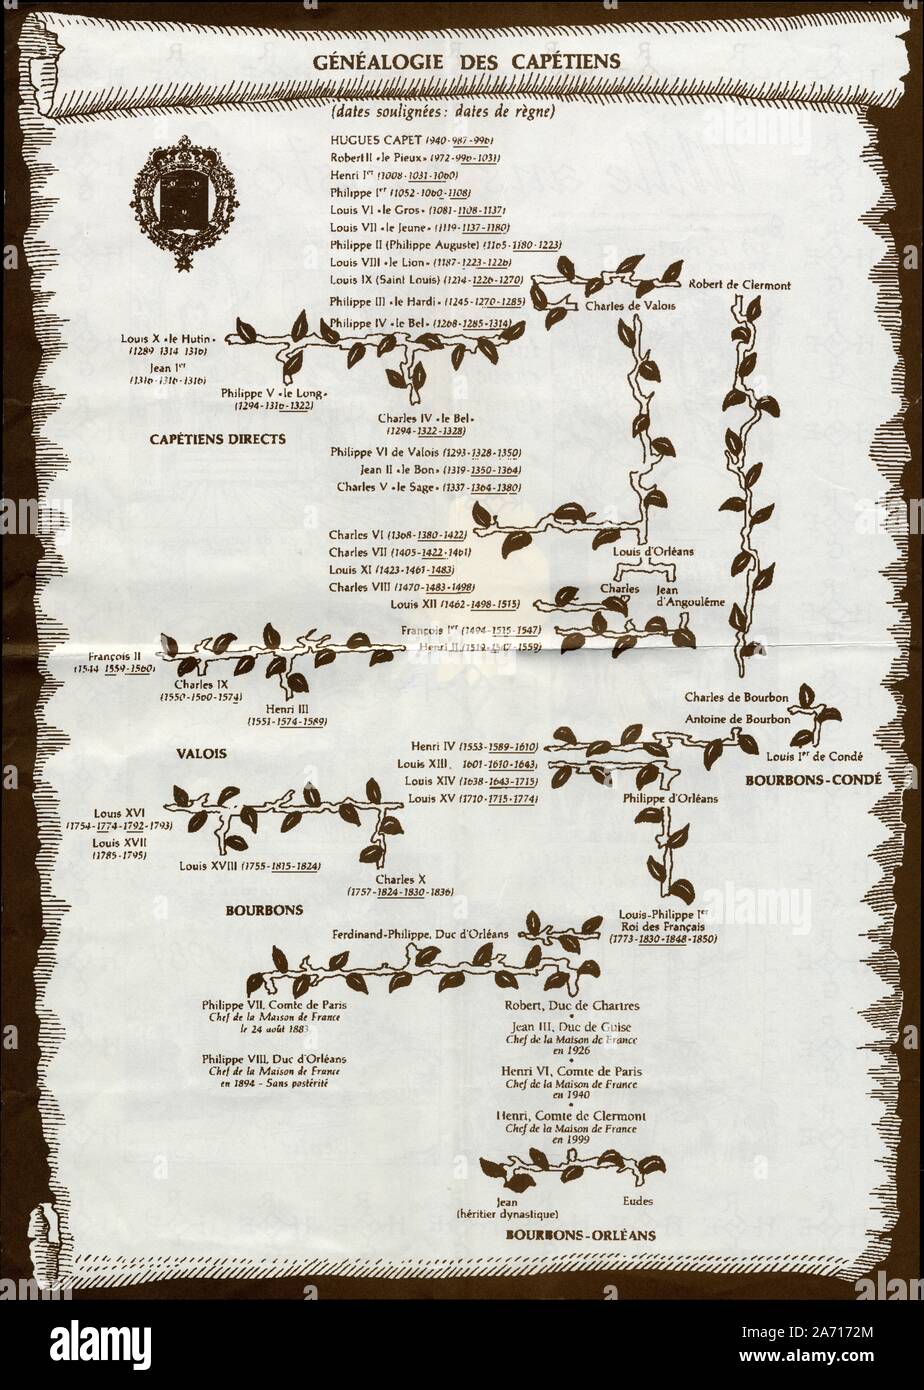 GÉNÉALOGIE DES CAPÉTIENS
(dates soulignées : dates de règne)
HUGUES CAPET (940-987-996)
Robert II «le Pieux» (972-996-1031)
Henri Ier (1008-1031-1060)
Philippe Ier (1052-1060-1108)
Louis VI «le Gros» (1081-1108-1137)
Louis VII «le Jeune» (1119-1137-1180)
Philippe II (Philippe Auguste) (1165-1180-1223)
Louis VIII «le Lion» (1187-1223-1226)
Louis IX (Saint Louis) (1214-1226-1270)
Robert de Clermont
Philippe III «le Hardi» (1245-1270-1285)
Charles de Valois
Philippe IV «le Bel» (1268-1285-1314)
Louis X «le Hutin»
(1289 1314 1316)
Jean Ier
(1316-1316-1316)
Philippe V «le Long»
(1294-1316-1322)
Charles IV «le Bel»
(1294-1322-1328)
CAPÉTIENS DIRECTS
Philippe VI de Valois (1293-1328-1350)
Jean II «le Bon» (1319-1350-1364)
Charles V «le Sage» (1337-1364-1380)
Charles VI (1368-1380-1422)
Charles VII (1405-1422-1461)
Louis XI (1423-1461-1483)
Charles VIII (1470-1483-1498)
Louis XII (1462-1498-1515)
Louis d'Orléans
Charles
Jean
d'Angoulême
François Ier (1494-1515-1547)
Henri II (1519-1547-1559)
François II
(1544 1559-1560)
Charles IX
(1550-1560-1574)
Henri III
(1551-1574-1589)
VALOIS
Charles de Bourbon
Antoine de Bourbon
Louis Ier de Condé
BOURBONS-CONDÉ
Henri IV (1553-1589-1610)
Louis XIII 1601-1610-1643)
Louis XIV (1638-1643-1715)
Louis XV (1710-1715-1774)
Philippe d'Orléans
Louis XVI
(1754-1774-1792-1793)
Louis XVII
(1785-1795)
Louis XVIII (1755-1815-1824)
Charles X
(1757-1824-1830-1836)
BOURBONS
Louis-Philippe Ier
Roi des Français
(1773-1830-1848-1850)
Ferdinand-Philippe, Duc d'Orléans
Philippe VII, Comte de Paris
Chef de la Maison de France
le 24 août 1883
Philippe VIII, Duc d'Orléans
Chef de la Maison de France
en 1894 - Sans postérité
Robert, Duc de Chartres
Jean III, Duc de Guise
Chef de la Maison de France
en 1926
Henri VI, Comte de Paris
Chef de la Maison de France
en 1940
Henri, Comte de Clermont
Chef de la Maison de France
en 1999
Jean
(héritier dynastique)
Eudes
BOURBONS-ORLÉANS
alamy
Image ID: 2A7172M
www.alamy.com